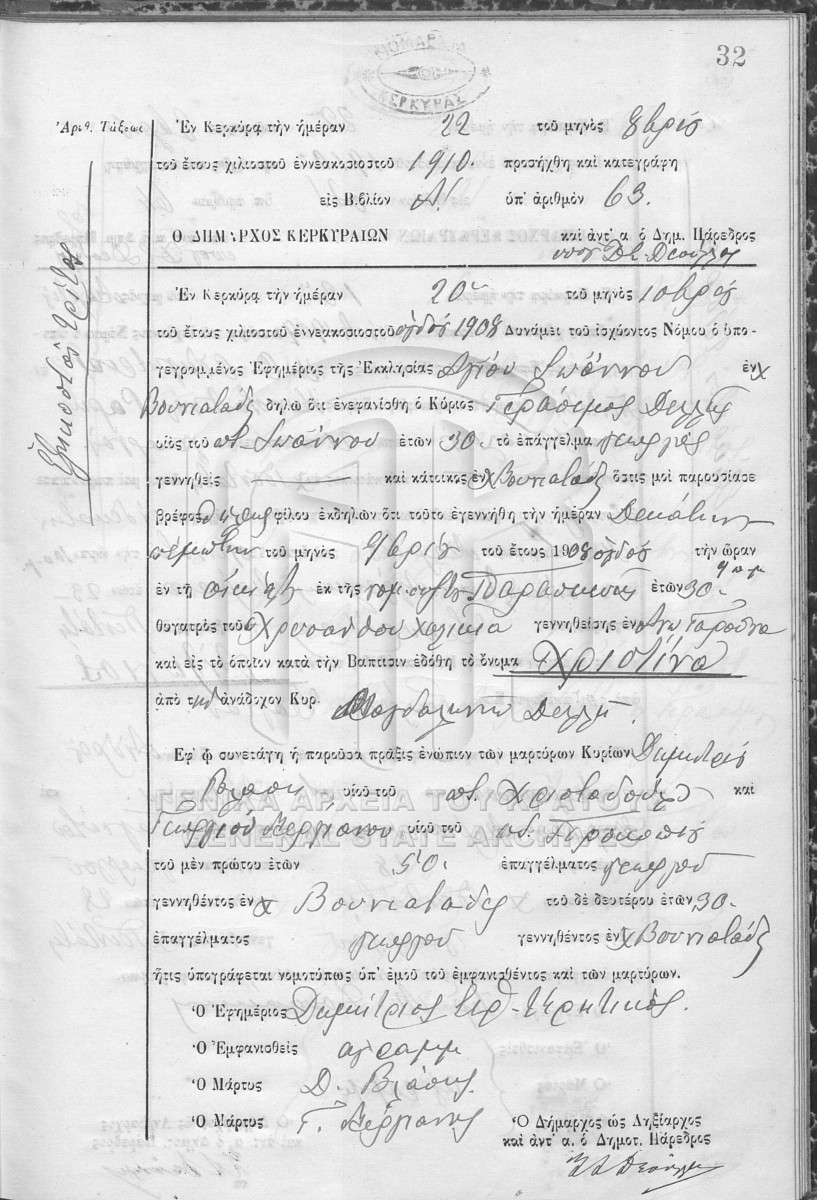 32
ΚΕΡΚΥΡΑΣ
Ἀριθ. Τάξεως
Ἐν Κερκύρᾳ τὴν ἡμέραν 22 τοῦ μηνὸς 8βρίου
τοῦ ἔτους χιλιοστοῦ ἐννεακοσιοστοῦ 1910. προσήχθη καὶ κατεγράφη
εἰς Βιβλίον Α΄. ὑπ᾽ ἀριθμὸν 63.
Ὁ ΔΗΜΑΡΧΟΣ ΚΕΡΚΥΡΑΙΩΝ καὶ ἀντ᾽ α. ὁ Δημ. Πάρεδρος
Ἐν Κερκύρᾳ τὴν ἡμέραν 20 τοῦ μηνὸς 10βρίου
τοῦ ἔτους χιλιοστοῦ ἐννεακοσιοστοῦ ὀγδόου 1908 Δυνάμει τοῦ ἰσχύοντος Νόμου ὁ ὑπο-
γεγραμμένος Ἐφημέριος τῆς Ἐκκλησίας Ἁγίου Ἰωάννου ἐν χ
Βουνιατάδες δηλῶ ὅτι ἐνεφανίσθη ὁ Κύριος Γεράσιμος Δελλῆς
υἱὸς τοῦ ποτ. Ἰωάννου ἐτῶν 30. τὸ ἐπάγγελμα γεωργὸς
γεννηθεὶς καὶ κάτοικος ἐν χ Βουνιατάδες ὅστις μοὶ παρουσίασε
βρέφος θήλεως φίλου ἐκδηλῶν ὅτι τοῦτο ἐγεννήθη τὴν ἡμέραν Δεκάτην
πέμπτην τοῦ μηνὸς 9βρίου τοῦ ἔτους 1908 ὀγδόου τὴν ὥραν 9 π.μ
ἐν τῇ ἐκ τῆς νομ. συζ. Παρασκευῆς ἐτῶν 30.
θυγατρὸς τοῦ Χρυσάνθου γεννηθείσης ἐν
καὶ εἰς τὸ ὁποῖον κατὰ τὴν Βάπτισιν ἐδόθη τὸ ὄνομα Χριστίνα
ἀπὸ τὴν ἀνάδοχον Κυρ. Μαγδαληνὴ Δελλῆ.
Ἐφ᾽ ᾧ συνετάγη ἡ παροῦσα πρᾶξις ἐνώπιον τῶν μαρτύρων Κυρίων Δημητρίου
Βλάση υἱοῦ τοῦ ποτ. Χριστοδούλου καὶ
Γεωργίου Βεργιανου υἱοῦ τοῦ ποτ.
ΓΕΝΙΚΑ ΑΡΧΕΙΑ ΤΟΥ ΚΡΑΤΟΥΣ
GENERAL STATE ARCHIVES
τοῦ μὲν πρώτου ἐτῶν 50. ἐπαγγέλματος γεωργοῦ
γεννηθέντος ἐν χ Βουνιατάδες τοῦ δὲ δευτέρου ἐτῶν 30.
ἐπαγγέλματος γεωργοῦ γεννηθέντος ἐν χ Βουνιατάδες
ἥτις ὑπογράφεται νομοτύπως ὑπ᾽ ἐμοῦ τοῦ ἐμφανισθέντος καὶ τῶν μαρτύρων.
Ὁ Ἐφημέριος Δημήτριος
Ὁ Ἐμφανισθεὶς ἀγράμμ
Ὁ Μάρτυς Δ. Βλάσης
Ὁ Μάρτυς Γ. Βεργιανης
Ὁ Δήμαρχος ὡς Ληξίαρχος
καὶ ἀντ᾽ α. ὁ Δημοτ. Πάρεδρος